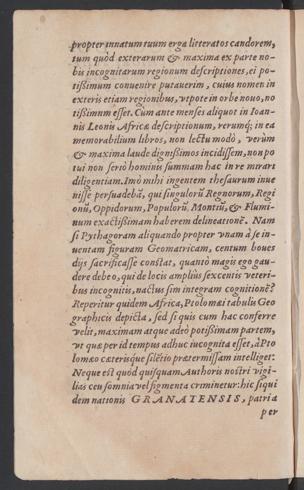 propter innatum tuum erga litteratos candorem,
tum quòd exterarum & maxima ex parte no-
bis incognitarum regionum descriptiones, ei po-
tißimum conuenire putauerim, cuius nomen in
exteris etiam regionibus, vtpote in orbe nouo, no
tißimum esset. Cum ante menses aliquot in Ioan-
nis Leonis Africæ descriptionum, rerumq; in ea
memorabilium libros, non lectu modò, verùm
& maxima laude dignißimos incidissem, non po
tui non seriò hominis summam hac in re mirari
diligentiam. Imò mihi ingentem thesaurum inue
nisse persuadebã, qui singulorũ Regnorum, Regi
onũ, Oppidorum, Populorũ, Montiũ, & Flumi-
num exactißimam haberem delineationẽ. Nam
si Pythagoram aliquando propter vnam à se in-
uentam figuram Geometricam, centum boues
dijs sacrificasse constat, quantò magis ego gau-
dere debeo, qui de locis ampliùs sexcentis veteri-
bus incognitis, nactus sim integram cognitionẽ?
Reperitur quidem Africa, Ptolomæi tabulis Geo
graphicis depicta, sed si quis cum hac conferre
velit, maximam atque adeò potißimam partem,
vt quæ per id tempus adhuc incognita esset, à Pto
lomæo cæterisque silẽtio prætermissam intelliget:
Neque est quòd quisquam Authoris nostri vigi-
lias ceu somnia vel figmenta criminetur: hic siqui
dem nationis GRANATENSIS, patria
per